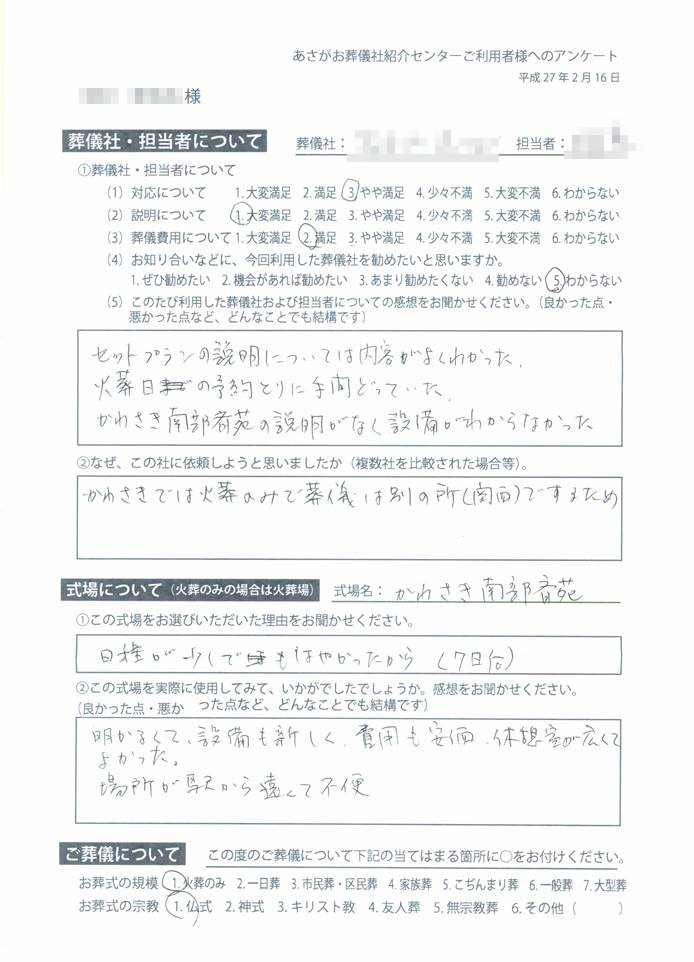 あさがお葬儀社紹介センターご利用者様へのアンケート
平成27年2月16日
様
葬儀社・担当者について 葬儀社： 担当者：
①葬儀社・担当者について
(1) 対応について 1.大変満足 2.満足 3.やや満足 4.少々不満 5.大変不満 6.わからない
(2) 説明について 1.大変満足 2.満足 3.やや満足 4.少々不満 5.大変不満 6.わからない
(3) 葬儀費用について 1.大変満足 2.満足 3.やや満足 4.少々不満 5.大変不満 6.わからない
(4) お知り合いなどに、今回利用した葬儀社を勧めたいと思いますか。
1.ぜひ勧めたい 2.機会があれば勧めたい 3.あまり勧めたくない 4.勧めない 5.わからない
(5) このたび利用した葬儀社および担当者についての感想をお聞かせください。（良かった点・
悪かった点など、どんなことでも結構です）
セットプランの説明については内容がよくわかった。
火葬日の予約とりに手間どっていた。
かわさき南部斎苑の説明がなく設備がわからなかった
②なぜ、この社に依頼しようと思いましたか（複数社を比較された場合等）。
かわさきでは火葬のみで葬儀は別の所(関西)でするため
式場について（火葬のみの場合は火葬場） 式場名：かわさき南部斎苑
①この式場をお選びいただいた理由をお聞かせください。
日程が少しでもはやかったから（7日会）
②この式場を実際に使用してみて、いかがでしたでしょうか。感想をお聞かせください。
（良かった点・悪か った点など、どんなことでも結構です）
明かるくて、設備も新しく、費用も安価、休憩室が広くて
よかった。
場所が駅から遠くて不便
ご葬儀について この度のご葬儀について下記の当てはまる箇所に○をお付けください。
お葬式の規模 1.火葬のみ 2.一日葬 3.市民葬・区民葬 4.家族葬 5.こぢんまり葬 6.一般葬 7.大型葬
お葬式の宗教 1.仏式 2.神式 3.キリスト教 4.友人葬 5.無宗教葬 6.その他（ ）